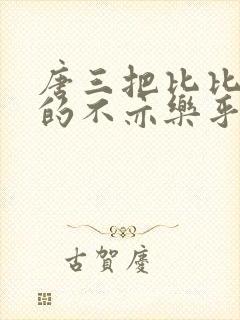 唐三把比比
的不亦樂乎
古賀慶